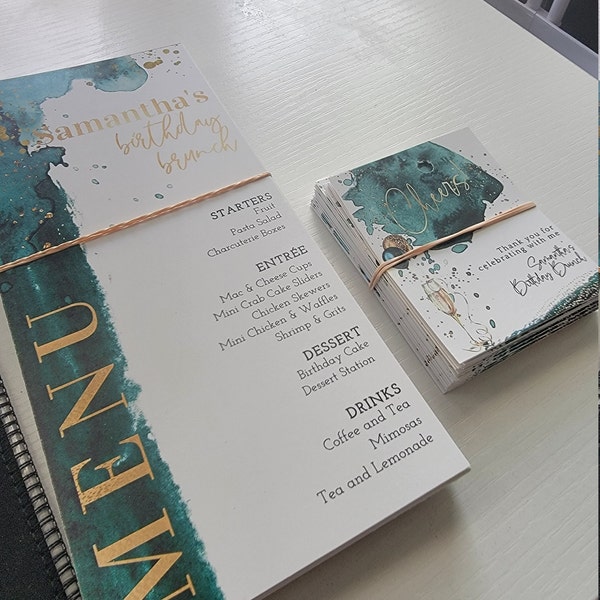 Samantha's
birthday
brunch
MENU
STARTERS
Fruit
Pasta Salad
Charcuterie Boxes
ENTRÉE
Mac & Cheese Cups
Mini Crab Cake Sliders
Chicken Skewers
Mini Chicken & Waffles
Shrimp & Grits
DESSERT
Birthday Cake
Dessert Station
DRINKS
Coffee and Tea
Mimosas
Tea and Lemonade
Cheers
Thank you for
celebrating with me
Samantha's
Birthday Brunch